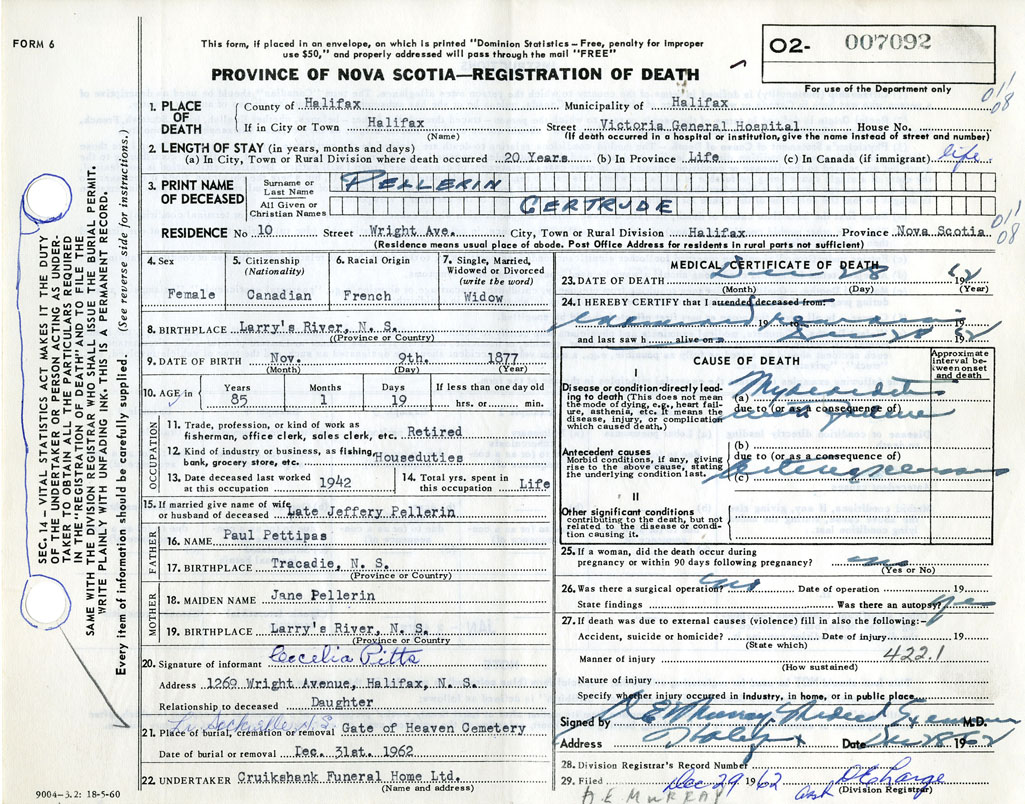 FORM 6
This form, if placed in an envelope, on which is printed "Dominion Statistics – Free, penalty for improper
use $50," and properly addressed will pass through the mail "FREE"
PROVINCE OF NOVA SCOTIA—REGISTRATION OF DEATH
O2- 007092
For use of the Department only
1. PLACE OF DEATH
County of Halifax Municipality of Halifax
If in City or Town Halifax Street Victoria General Hospital House No.
(Name) (If death occurred in a hospital or institution, give the name instead of street and number)
2. LENGTH OF STAY (in years, months and days)
(a) In City, Town or Rural Division where death occurred 20 Years (b) In Province Life (c) In Canada (if immigrant) life
3. PRINT NAME OF DECEASED
Surname or Last Name PELLERIN
All Given or Christian Names GERTRUDE
RESIDENCE No 10 Street Wright Ave. City, Town or Rural Division Halifax Province Nova Scotia
(Residence means usual place of abode. Post Office Address for residents in rural parts not sufficient)
011
08
011
08
SEC. 14 – VITAL STATISTICS ACT MAKES IT THE DUTY
OF THE UNDERTAKER OR PERSON ACTING AS UNDER-
TAKER TO OBTAIN ALL THE PARTICULARS REQUIRED
IN THE "REGISTRATION OF DEATH" AND TO FILE THE
SAME WITH THE DIVISION REGISTRAR WHO SHALL ISSUE THE BURIAL PERMIT.
WRITE PLAINLY WITH UNFADING INK. THIS IS A PERMANENT RECORD.
Every item of information should be carefully supplied. (See reverse side for instructions.)
4. Sex
Female
5. Citizenship
(Nationality)
Canadian
6. Racial Origin
French
7. Single, Married,
Widowed or Divorced
(write the word)
Widow
8. BIRTHPLACE Larry's River, N. S.
((Province or Country)
9. DATE OF BIRTH Nov. 9th. 1877
(Month) (Day) (Year)
10. AGE in
Years Months Days If less than one day old
85 1 19 hrs. or min.
OCCUPATION
11. Trade, profession, or kind of work as
fisherman, office clerk, sales clerk, etc. Retired
12. Kind of industry or business, as fishing,
bank, grocery store, etc. Houseduties
13. Date deceased last worked
at this occupation 1942
14. Total yrs. spent in
this occupation Life
15. If married give name of wife
or husband of deceased Late Jeffery Pellerin
FATHER
16. NAME Paul Pettipas
17. BIRTHPLACE Tracadie, N. S.
(Province or Country)
MOTHER
18. MAIDEN NAME Jane Pellerin
19. BIRTHPLACE Larry's River, N. S.
(Province or Country)
20. Signature of informant Cecelia Pitts
Address 1269 Wright Avenue, Halifax, N. S.
Relationship to deceased Daughter
Lr. Sackville N.S.
21. Place of burial, cremation or removal Gate of Heaven Cemetery
Date of burial or removal Dec. 31st. 1962
22. UNDERTAKER Cruikshank Funeral Home Ltd.
(Name and address)
9004–3.2: 18-5-60
MEDICAL CERTIFICATE OF DEATH
23. DATE OF DEATH Dec 28 1962
(Month) (Day) (Year)
24. I HEREBY CERTIFY that I attended deceased from:
19 to 19
and last saw h alive on Dec 28 1962
CAUSE OF DEATH
Approximate
interval be-
tween onset
and death
I
Disease or condition directly lead-
ing to death (This does not mean
the mode of dying, e.g., heart fail-
ure, asthenia, etc. It means the
disease, injury, or complication
which caused death.)
(a) Myocarditis
due to (or as a consequence of)
Antecedent causes
Morbid conditions, if any, giving
rise to the above cause, stating
the underlying condition last.
(b)
due to (or as a consequence of)
(c) arteriosclerosis
II
Other significant conditions
contributing to the death, but not
related to the disease or condi-
tion causing it.
25. If a woman, did the death occur during
pregnancy or within 90 days following pregnancy? no
(Yes or No)
26. Was there a surgical operation? no Date of operation 19
State findings Was there an autopsy? yes
27. If death was due to external causes (violence) fill in also the following:–
Accident, suicide or homicide? Date of injury 19
(State which)
Manner of injury 422.1
(How sustained)
Nature of injury
Specify whether injury occurred in industry, in home, or in public place
Signed by E Murray Medical Examiner M.D.
Address Halifax Date Dec 28 1962
28. Division Registrar's Record Number
29. Filed Dec 29 1962
(Division Registrar)
D E MURRAY